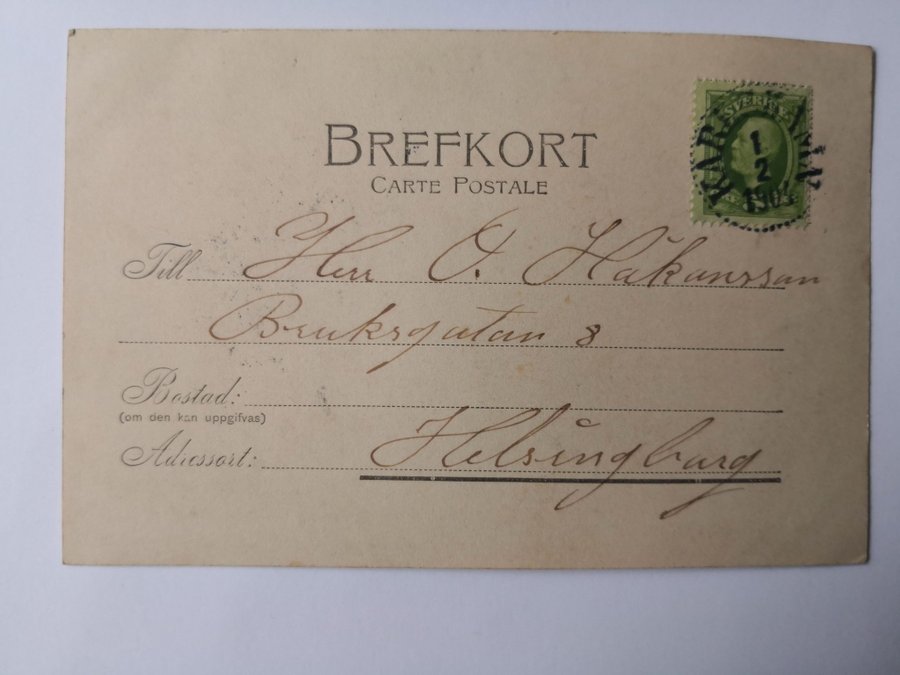 BREFKORT
CARTE POSTALE
SVERIGE
1
2
1904
Till Herr O. Håkansson
Bruksgatan 8
Bostad:
(om den kan uppgifvas)
Adressort: Helsingborg